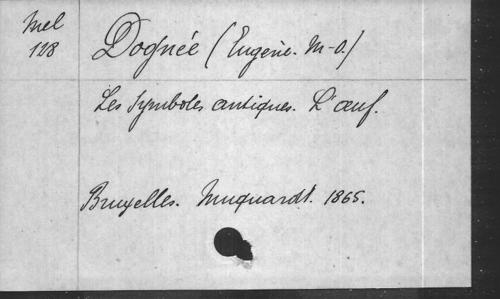 Mel
128
Dognée (Eugène-M-O.)
Les Symboles antiques. L'œuf.
Bruxelles. Muquardt. 1865.